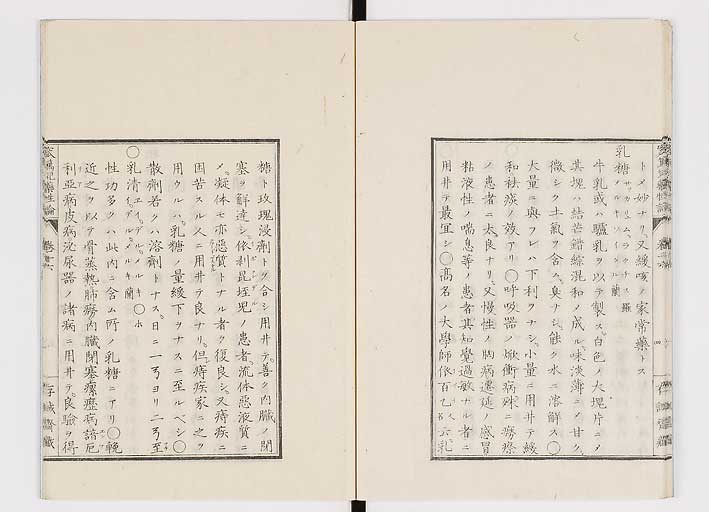 トメ妙ナリ又緩咳ノ家常藥トス
乳糖
サッカリュム、ラクチス 羅
メルキソイクル 蘭
牛乳或ハ驢乳ヲ以テ製ス白色ノ大塊片ニメ
其塊ハ結芒錯綜混和ノ成ル味淡薄ニノ甘ク
微シク土氣ヲ含ム臭ナシ能ク水ニ溶解ス〇
大量ニ與フレハ下利ヲナシ小量ニ用井テ緩
和祛痰ノ效アリ〇呼吸器ノ焮衝病殊ニ癆瘵
ノ患者ニ太良ナリ又慢性ノ胸病遷延ノ感冒
粘液性ノ喘息等ノ患者其知覺過敏ナル者ニ
用井テ最宜シ〇高名ノ大學師依百乙
糖ト玫瑰浸劑トヲ合シ用井テ善ク內臟ノ閉
塞ヲ鮮達シ依剥昆垤児ノ患者流体惡液質ニ
ノ凝体モ亦惡質トナル者ヲ復良シ又痔疾ニ
困苦スル人ニ用井テ良ナリ但痔疾家ニ之ヲ
用ウルハ乳糖ノ量緩下ヲナスニ至ルベシ〇
散劑若クハ溶劑トナス日ニ一弓ヨリ二弓至
〇乳清
性功多クハ此內ニ含ム所ノ乳糖ニアリ〇輓
近之ヲ以テ骨蒸熱肺癆內臟閉塞瘰癧病諳厄
利亞病皮病泌尿器ノ諸病ニ用井テ良驗ヲ得
存誠齋藏